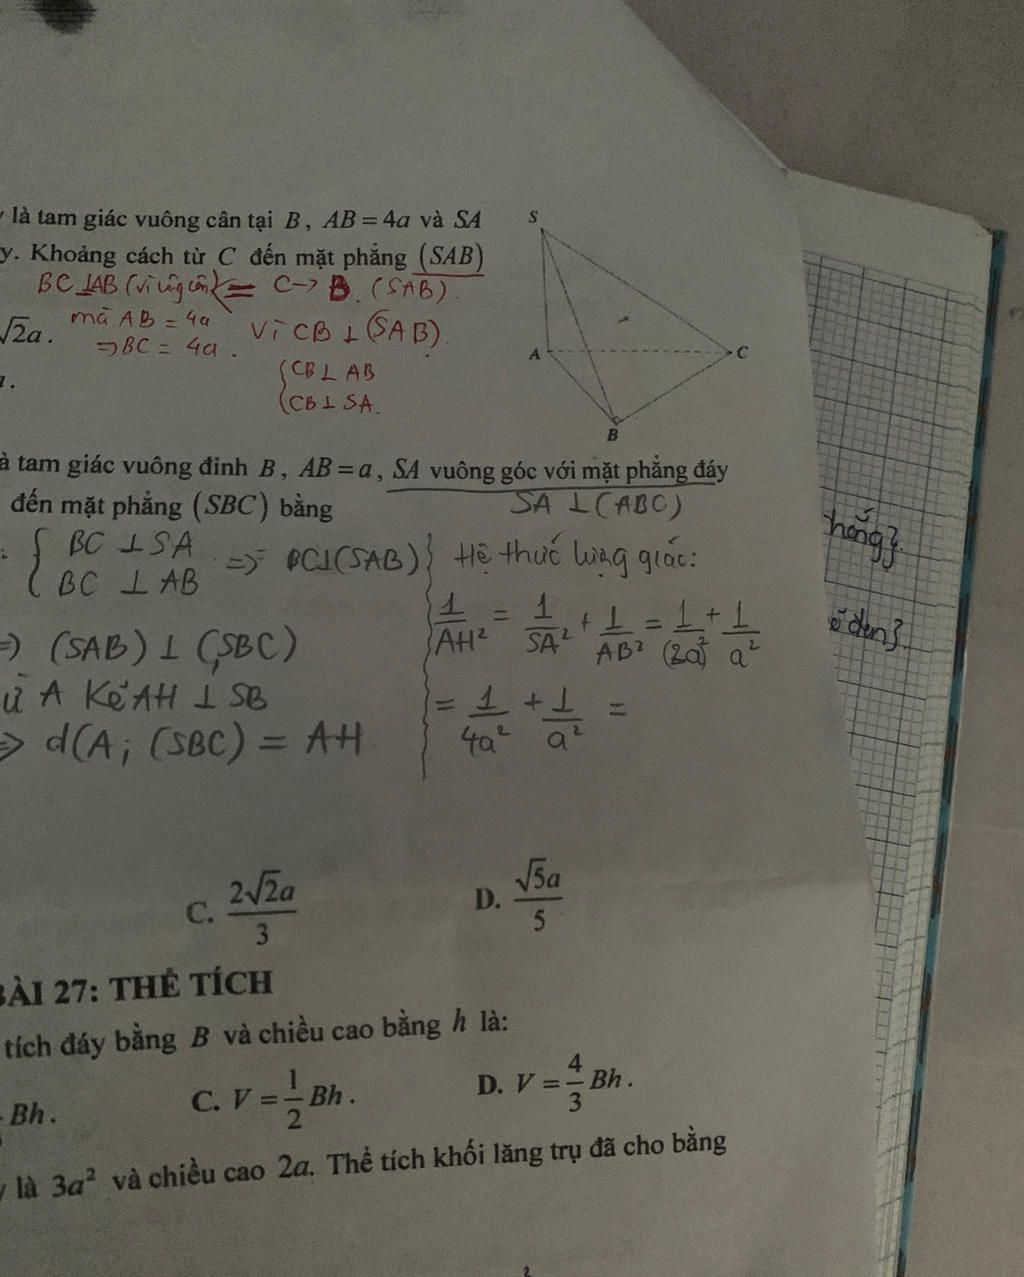 là tam giác vuông cân tại B, AB = 4a và SA
y. Khoảng cách từ C đến mặt phẳng (SAB)
BC ⊥ AB (vì vuông cân) <= C -> B. (SAB).
√2a. mà AB = 4a Vì CB ⊥ (SAB).
=> BC = 4a.
{ CB ⊥ AB
{ CB ⊥ SA.
S
A
C
B
à tam giác vuông đỉnh B, AB = a, SA vuông góc với mặt phẳng đáy
đến mặt phẳng (SBC) bằng
SA ⊥ (ABC)
{ BC ⊥ SA
{ BC ⊥ AB
=> BC ⊥ (SAB)
=> (SAB) ⊥ (SBC)
ừ A kẻ AH ⊥ SB
=> d(A; (SBC) = AH
Hệ thức lượng giác:
1/AH² = 1/SA² + 1/AB² = 1/(2a)² + 1/a²
= 1/4a² + 1/a² =
C. 2√2a/3 D. √5a/5
BÀI 27: THỂ TÍCH
tích đáy bằng B và chiều cao bằng h là:
Bh. C. V = 1/2 Bh. D. V = 4/3 Bh.
là 3a² và chiều cao 2a. Thể tích khối lăng trụ đã cho bằng
2